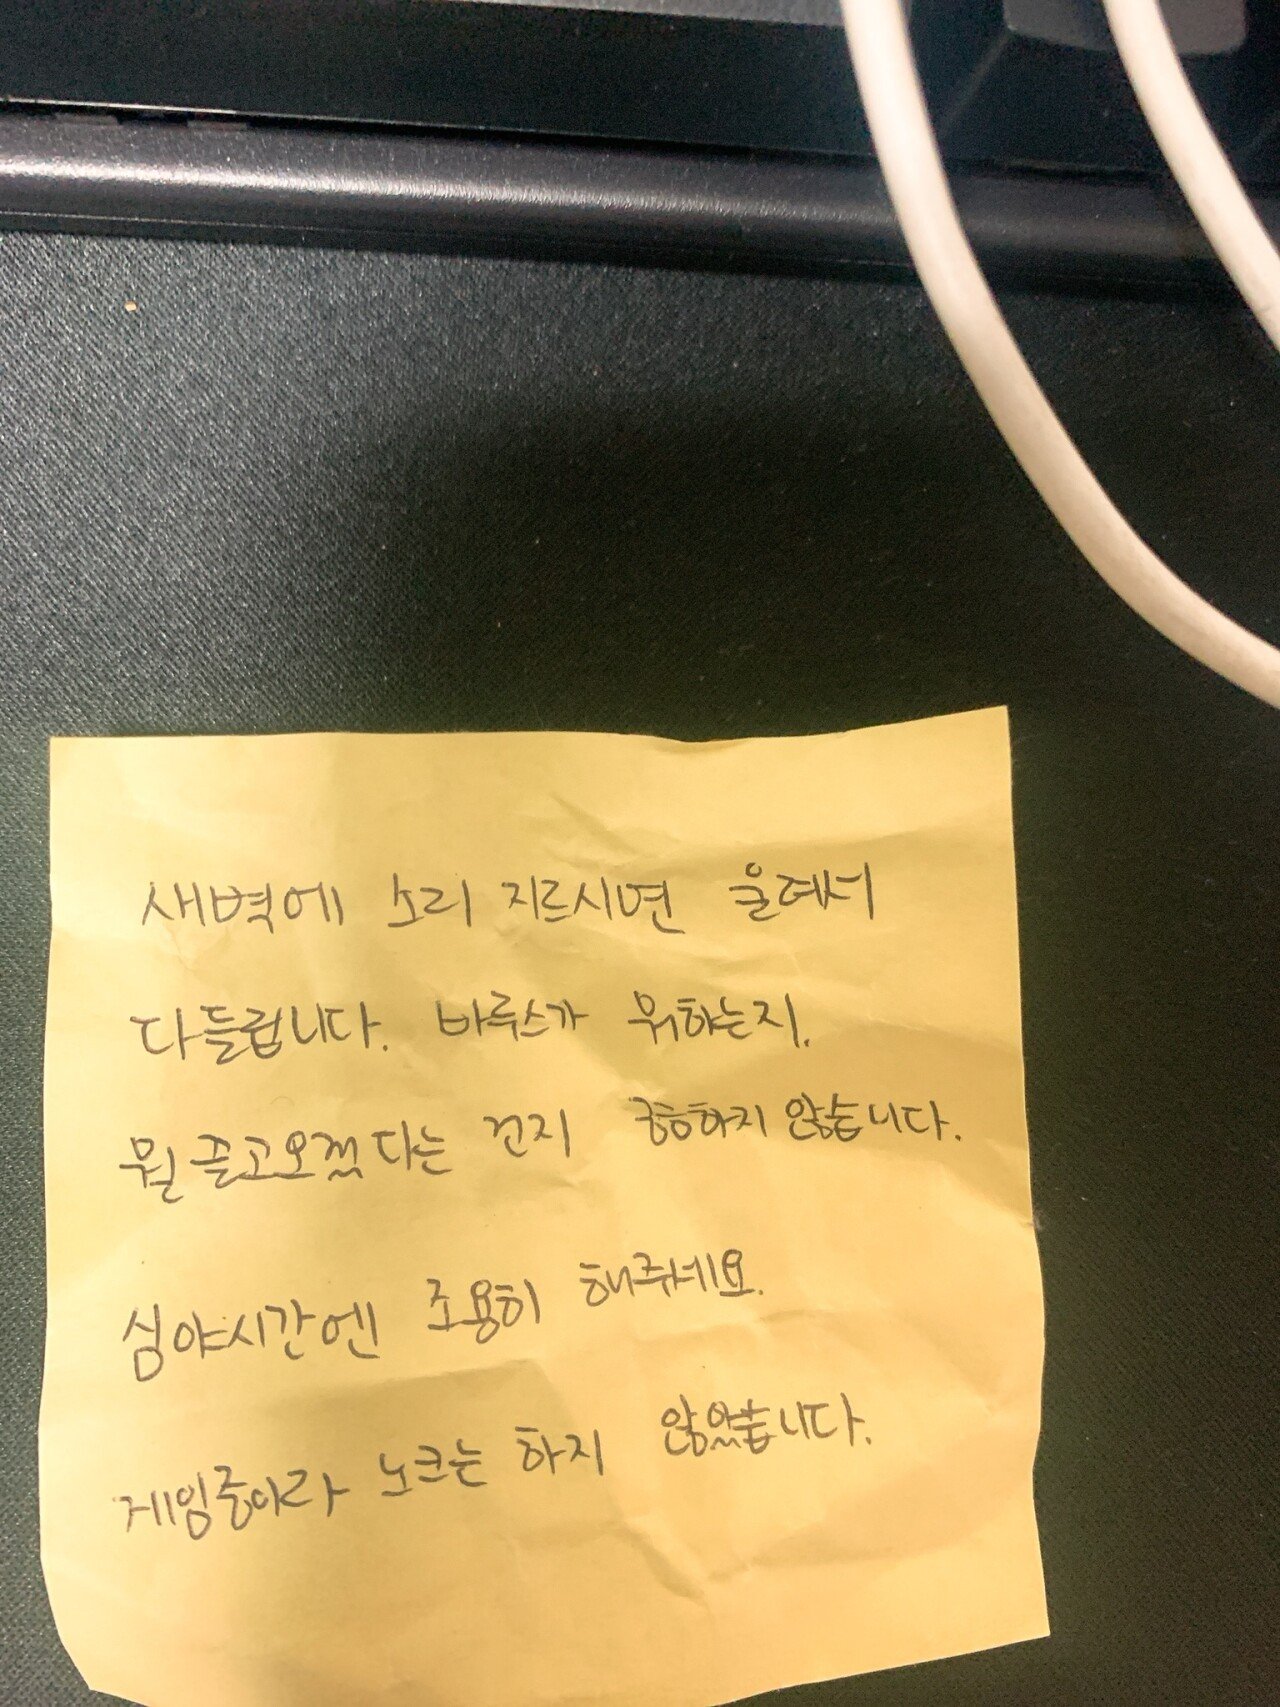 새벽에 소리 지르시면 울려서
다들립니다. 바루스가 뭐하는지.
뭘 들고오겠다는 건지 궁금하지 않습니다.
심야시간엔 조용히 해주세요.
게임중이라 노크는 하지 않았습니다.